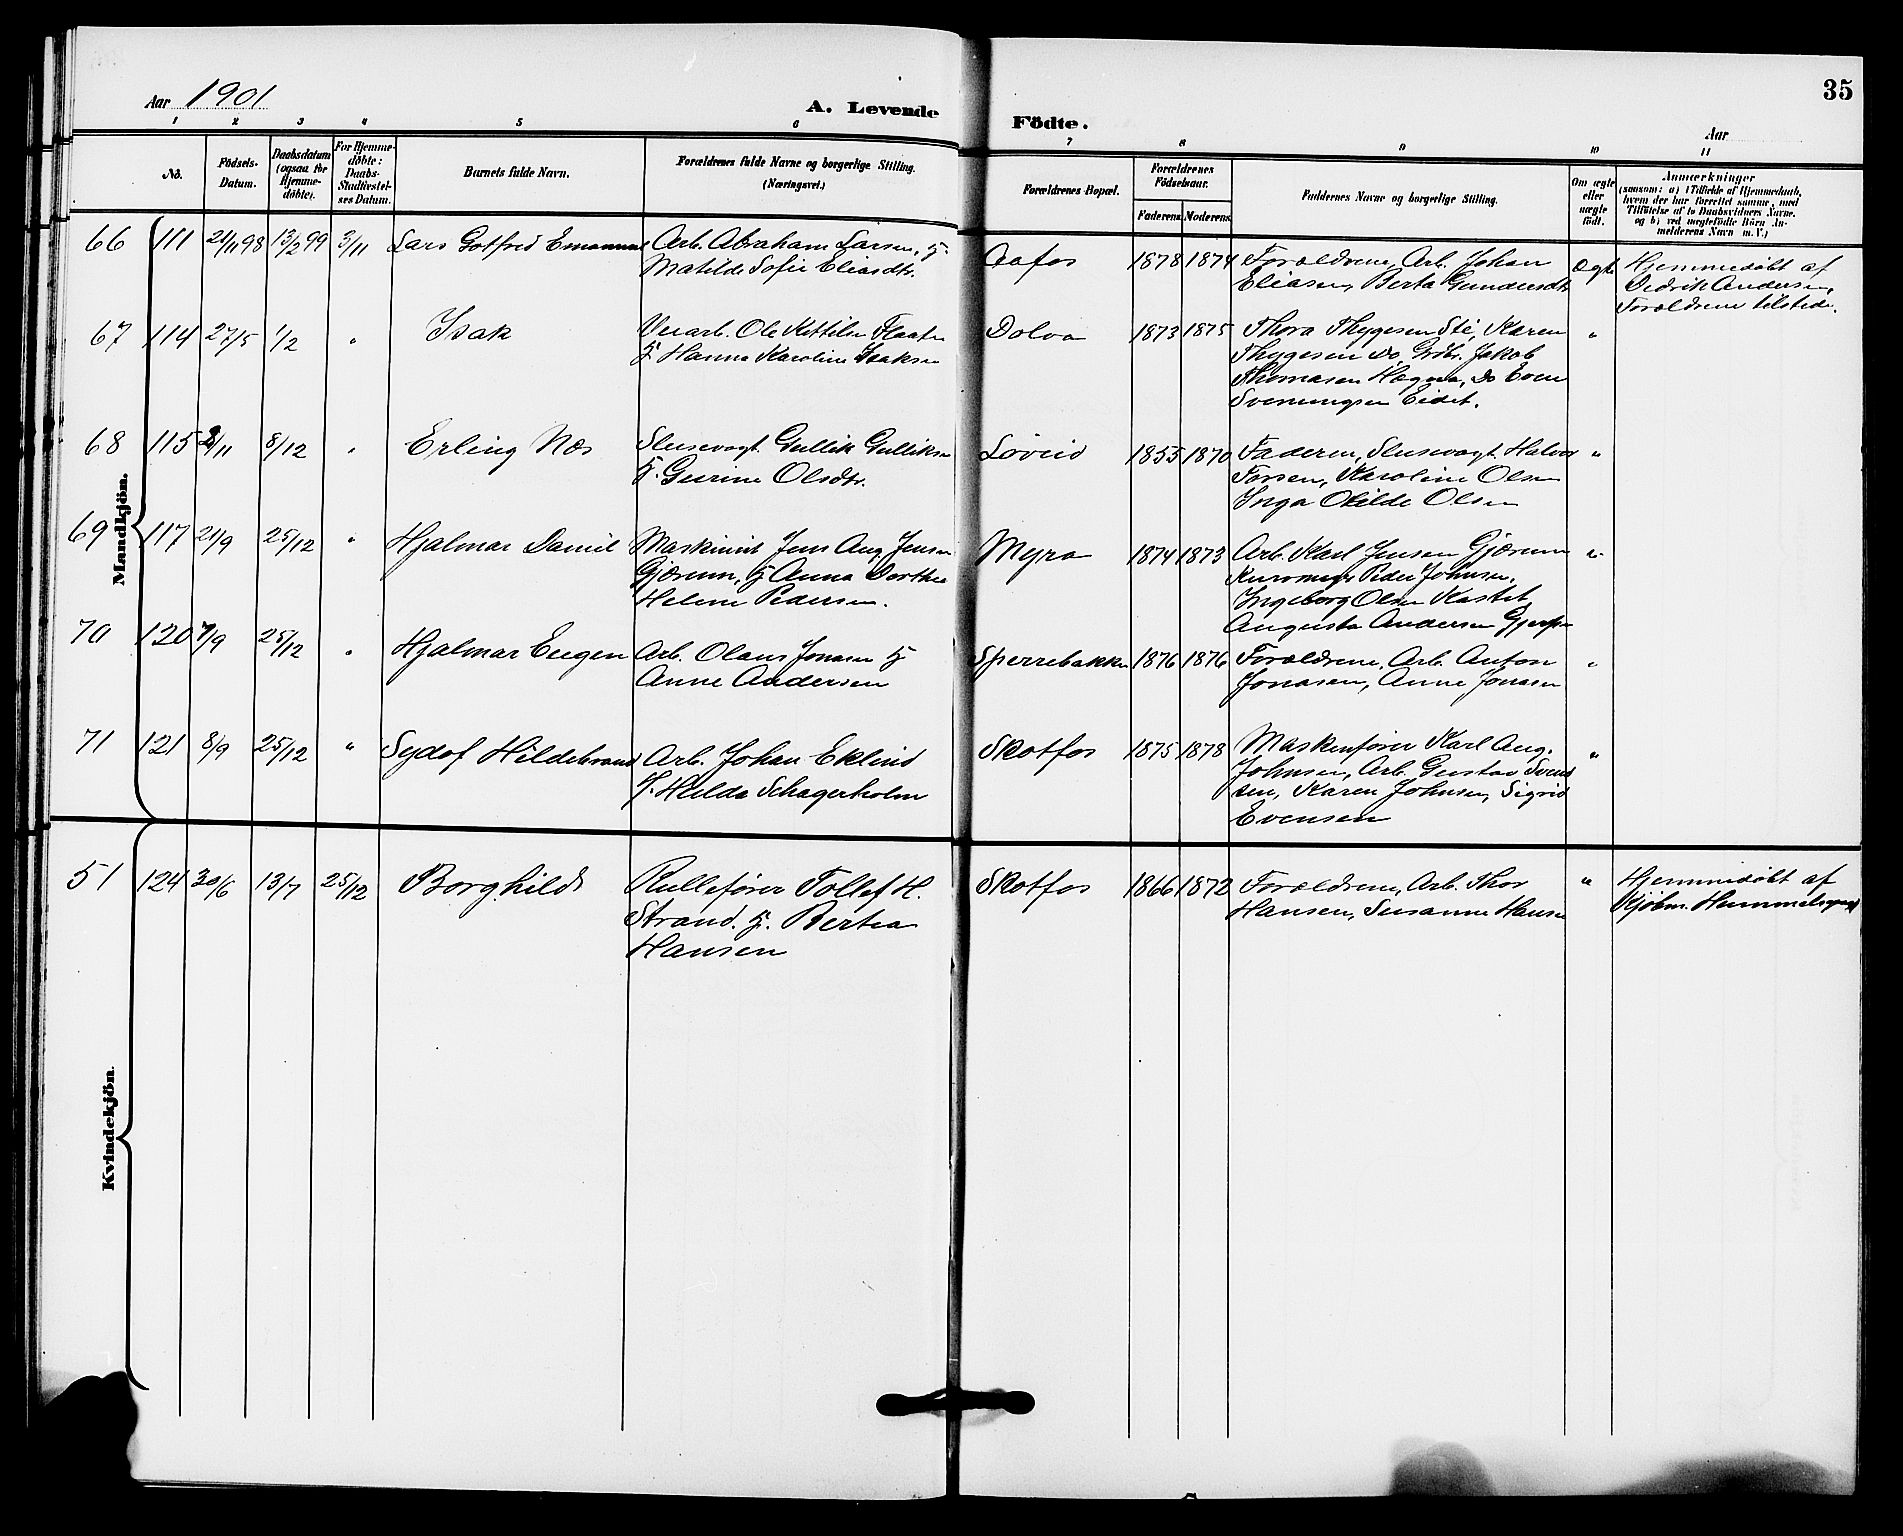 Aar 1901
A. Levende
Födte.
35
Aar
1 2 3 4 5 6 7 8 9 10 11
No.
Födsels-
Datum.
Daabsdatum
(ogsaa for
Hjemme-
døbte).
For Hjemme-
døbte:
Daabs-
Stadfæstel-
ses Datum.
Barnets fulde Navn.
Forældrenes fulde Navne og borgerlige Stilling.
(Næringsvei.)
Forældrenes Bopæl.
Forældrenes
Födselsaar.
Faderens Moderens
Faddernes Navne og borgerlige Stilling.
Om ægte
eller
uægte
födt.
Anmærkninger
(saasom: a) i Tilfælde af Hjemmedaab,
hvem der har forrettet samme, med
Tilföielse af to Daabsvidners Navne,
og b) ved uægtefödte Börn An-
melderens Navn m. V.)
Mandkjön.
66 111 21/11 98 13/2 99 3/11 Lars Gotfred Emanuel
Arb. Abraham Larsen, H.
Matilde Sofie Eliasdtr.
Aafos 1878 1874
Forældrene, Arb. Johan
Eliasen, Berta Gundersdtr
Ægte
Hjemmedøbt af
Didrik Andersen,
Forældrene tilstede.
67 114 27/5 1/2 " Isak
Veiarb. Ole Kittilsen Flaaten
H. Hanna Karoline Isaksen
Dolva 1873 1875
Thora Thygesen Sti, Karen
Thygesen Do, Grdbr. Jakob
Thomasen Hægna, Do Even
Sveinungsen Eidet.
"
68 115 8/11 8/12 " Erling Næs
Slusevogt Gullik Gulliksen
H. Gurine Olsdtr.
Løveid 1855 1870
Faderen, Slusevogt Halvor
Torsen, Karoline Olsen
Inga Otilde Olsen
"
69 117 21/9 25/12 " Hjalmar Daniel
Maskinist Jens Aug. Jensen
Gjærum, H Anna Dorthea
Helene Pedersen.
Myra 1874 1873
Arb. Karl Jensen Gjærum
Kurvmager Peder Johnsen,
Ingeborg Olsen Kastet,
Augusta Andersen Gjerpen
"
70 120 7/9 25/12 " Hjalmar Eugen
Arb. Olaus Jonasen H
Anne Andersen
Sperrebakken 1876 1876
Forældrene, Arb. Anton
Jonasen, Anne Jonasen
"
71 121 8/9 25/12 " Sydof Hildebrand
Arb. Johan Eklind
H. Hulda Schagerholm
Skotfos 1875 1878
Maskenfører Karl Aug.
Johnsen, Arb. Gustav Svend
sen, Karen Johnsen, Sigrid
Evensen
"
Kvindekjön.
51 124 30/6 13/7 25/12 Borghild
Rullefører Tollef H.
Strand. H. Bertea
Hansen
Skotfos 1866 1872
Forældrene, Arb. Thor
Hansen, Susanne Hansen
"
Hjemmedøbt af
Kjøbm. Hummelsgaard